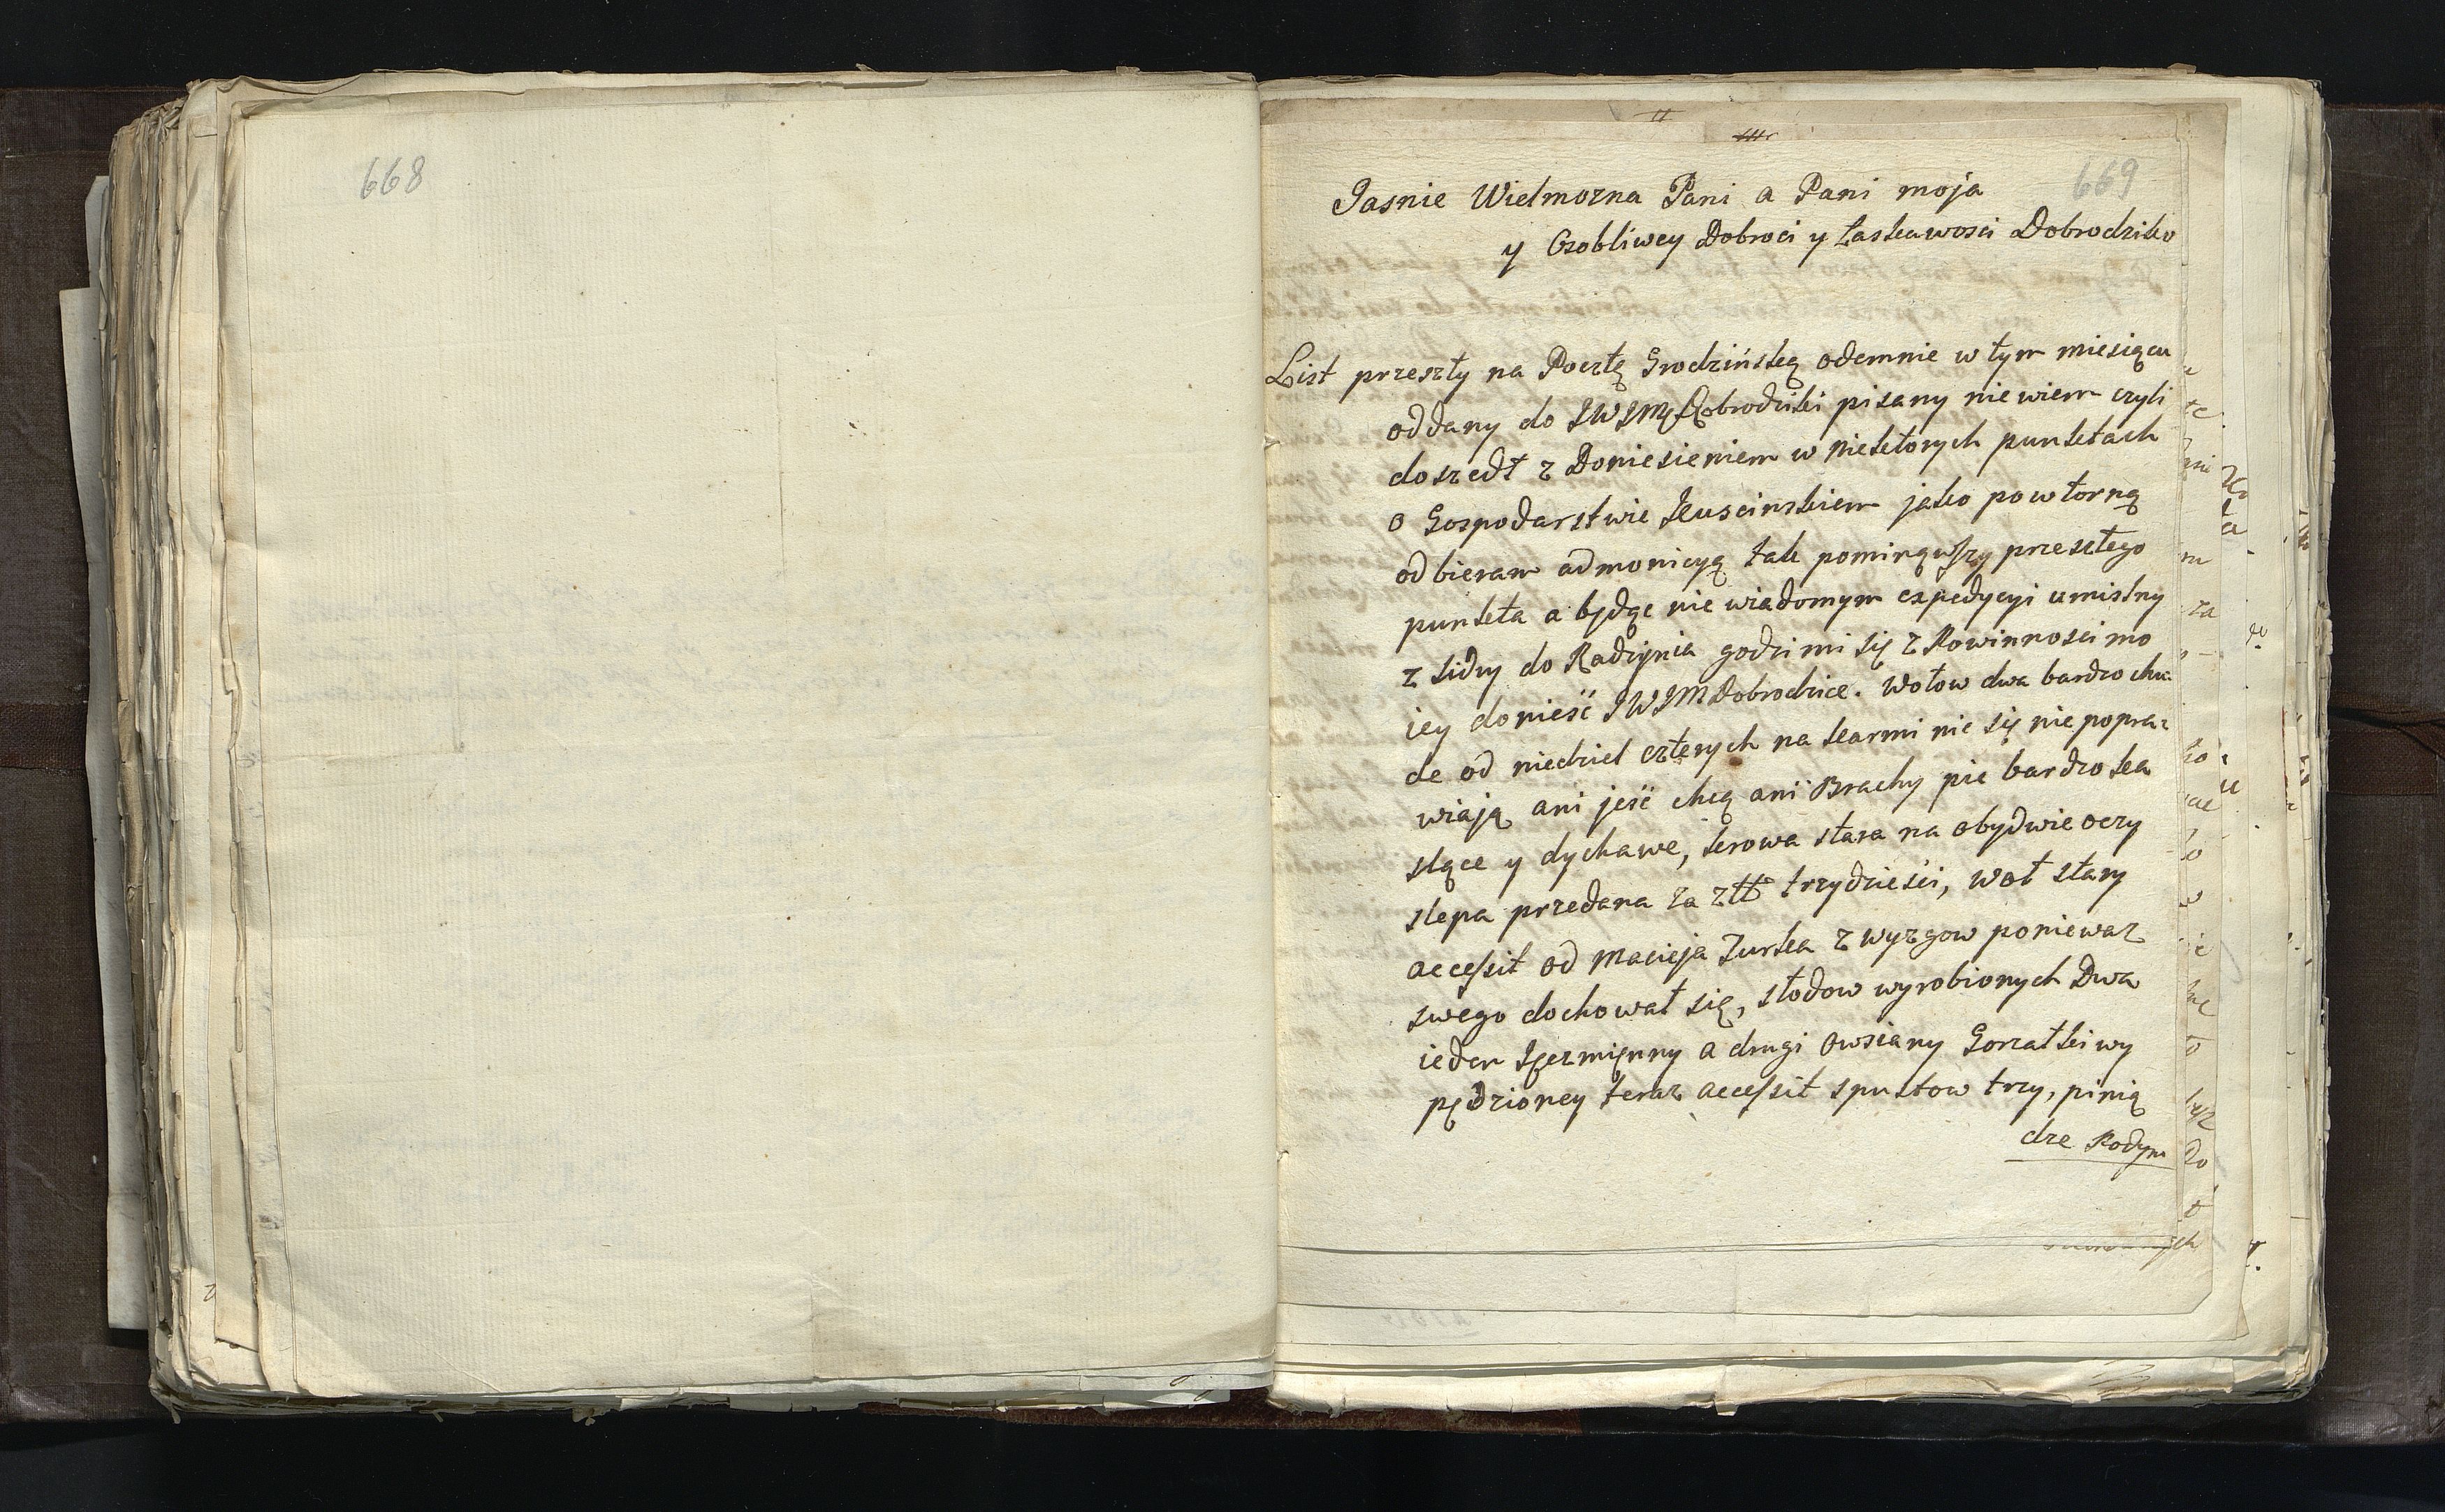 668
669
Jasnie Wielmozna Pani a Pani moja
y Osobliwey Dobroci y Łaskawosci Dobrodziko
List przeszły na Pocztę Grodzińską odemnie w tym miesiącu
oddany do JWJMę Dobrodziki pisany niewiem czyli
doszedł z Doniesieniem w niektorych punktach
o Gospodarstwie Kuscinskiem jako powtorną
odbieram admonicyą tak pominąwszy przeszłego
punkta a będąc nie wiadomym expedycyi umislny
z Sidry do Radzynia godzi mi się z Powinnosci mo
iey donieść JWJM Dobrodzice. Wołow dwa bardzo chu
de od niedziel czterych na karmi nic się nie popra=
wiają ani jeść chcą ani Brachy pić bardzo ka
slące y dychawe, krowa stara na obydwie oczy
slepa przedana za złł trzydzieści, woł stary
accessit od Macieja Zurka z wyzgow poniewaz
swego dochował się, słodow wyrobionych Dwa
ieden Jęczmięnny a drugi Owsiany Gorzałki wy
pędzioney teraz accessit spustow trzy, pinią
dze Podym